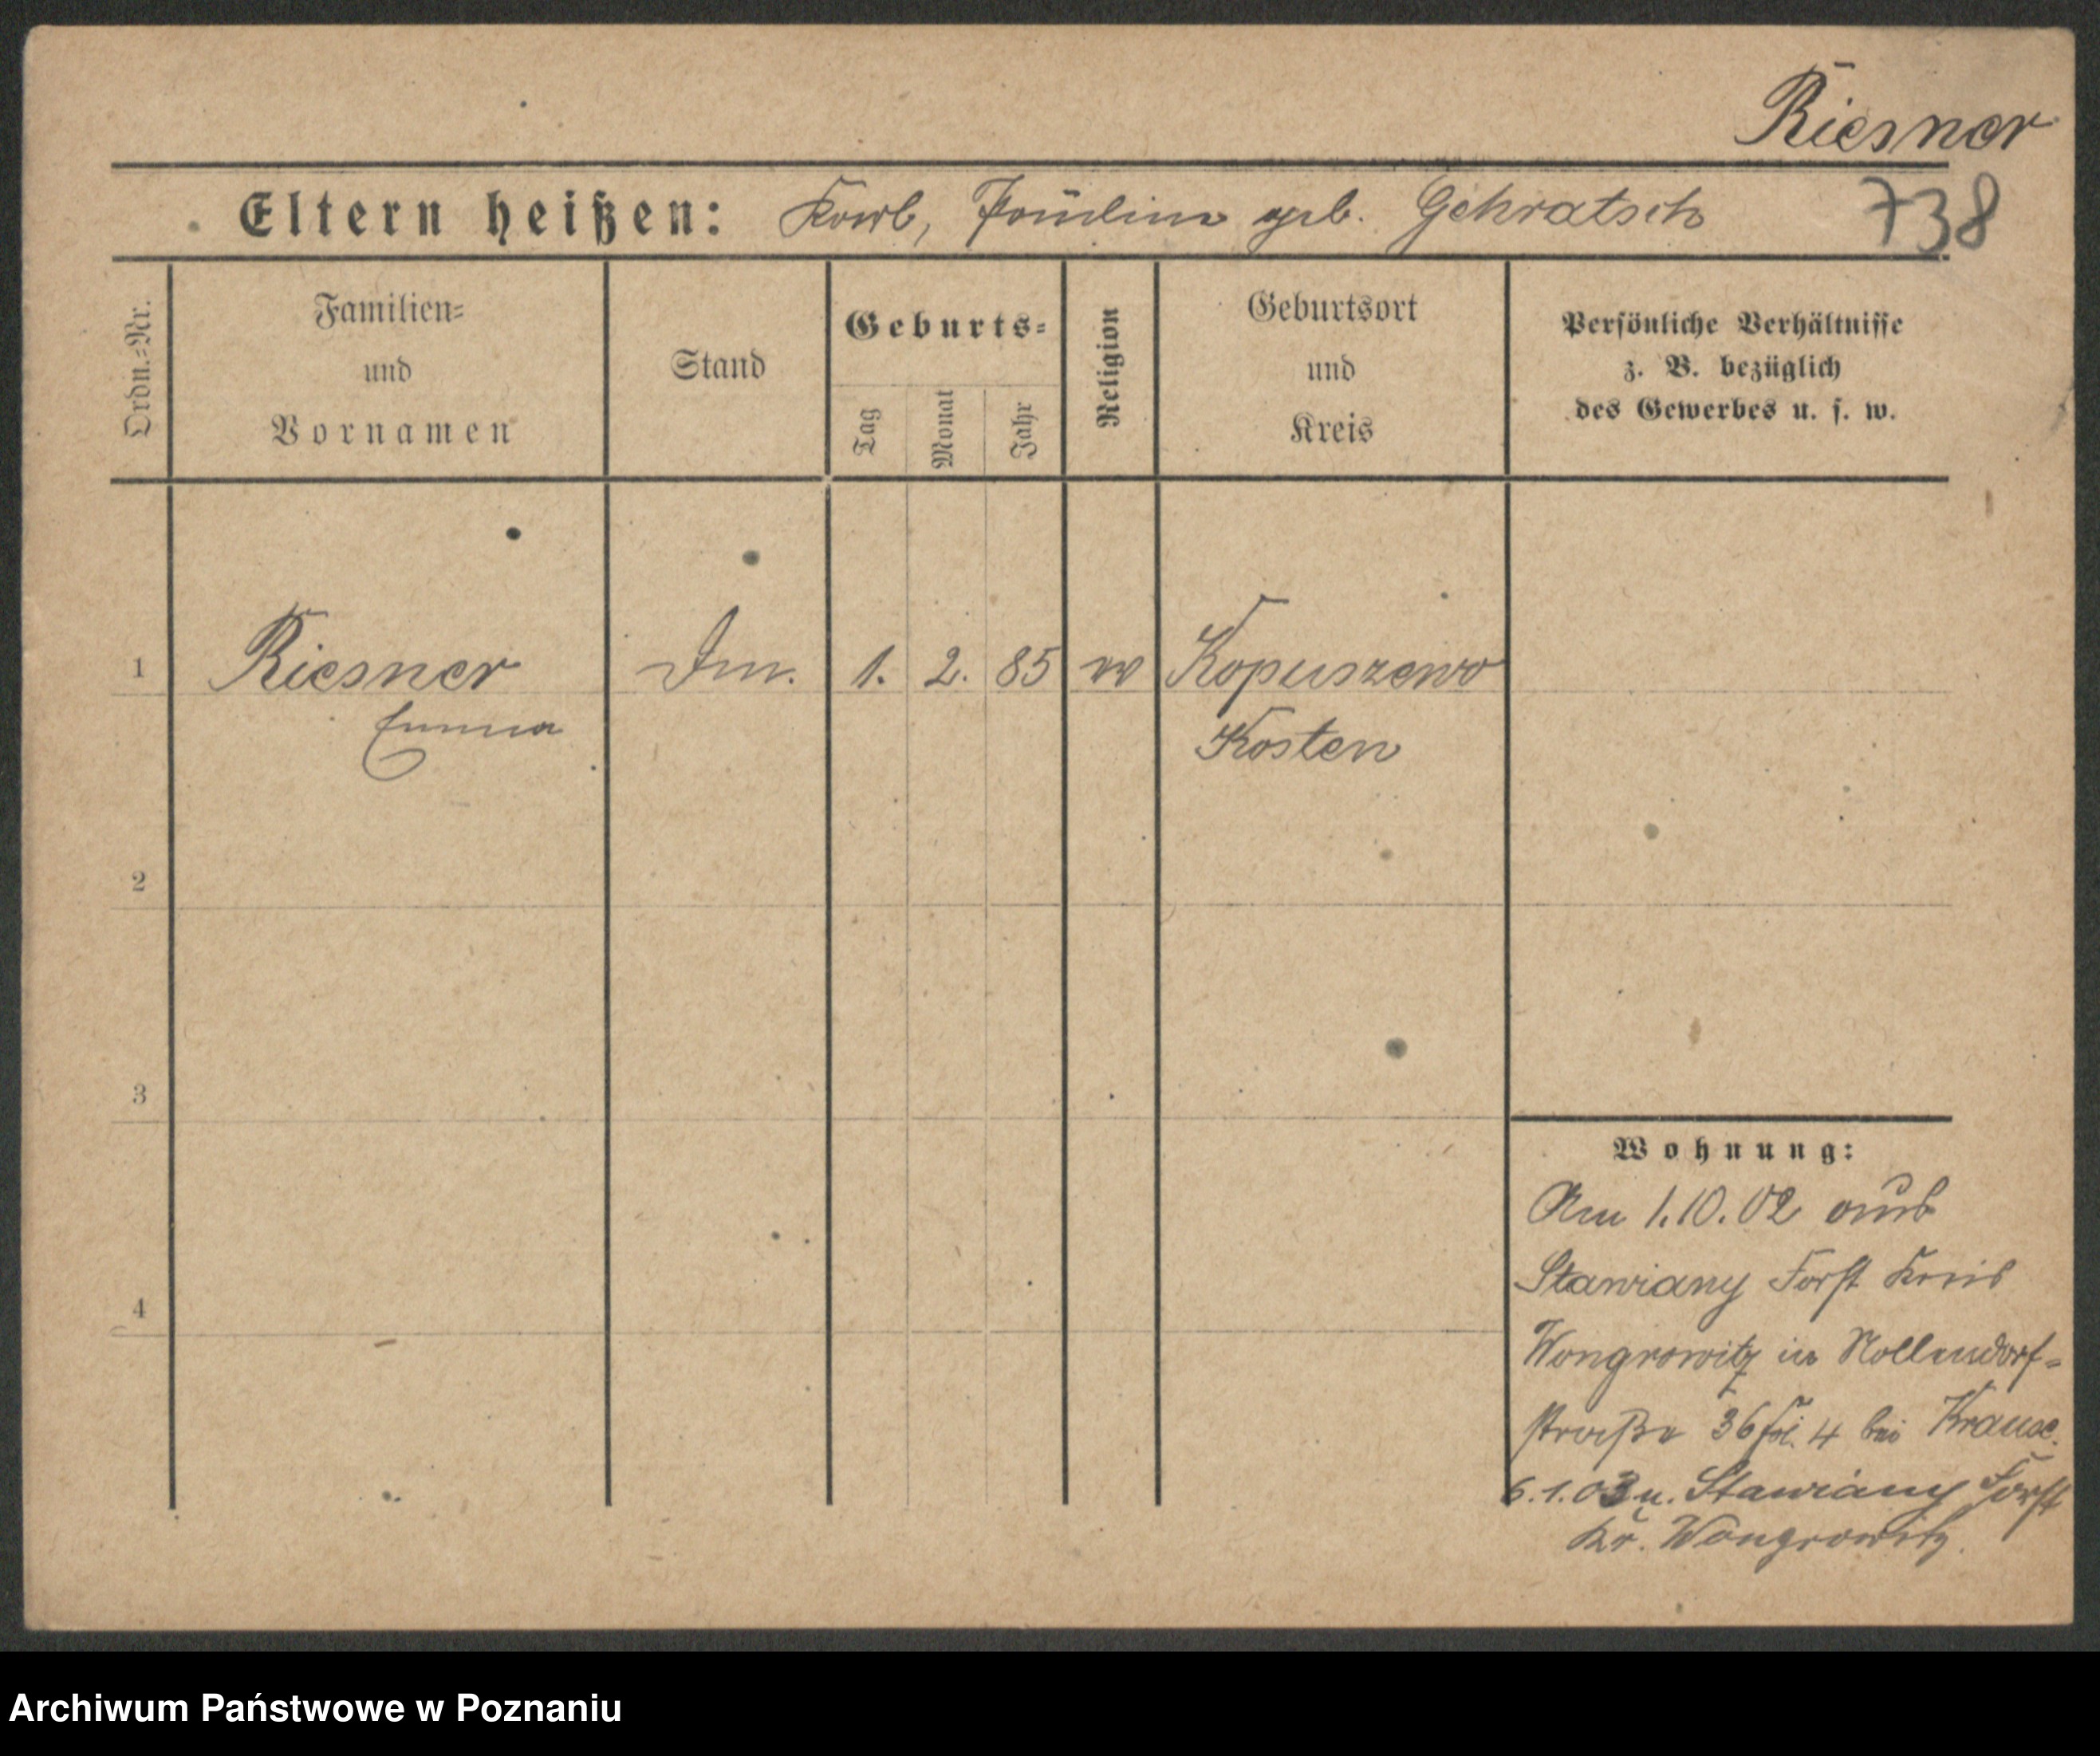 Riesner
Eltern heißen: Karl, Pauline geb. Gehratsch 738
Ordn.-Nr.
Familien-
und
Vornamen
Stand
Geburts-
Tag
Monat
Jahr
Religion
Geburtsort
und
Kreis
Persönliche Verhältnisse
z. B. bezüglich
des Gewerbes u. s. w.
1 Riesner 1. 2. 85 Kopuszewo
Emma Kosten
2
3
4
Wohnung:
Am 1.10.02 aus
Stawiany Forst Kreis
Wongrowitz in Nollendorf-
straße 36 4 bei Krause.
6.1.03 n. Stawiany Forst
Kr. Wongrowitz.
Archiwum Państwowe w Poznaniu